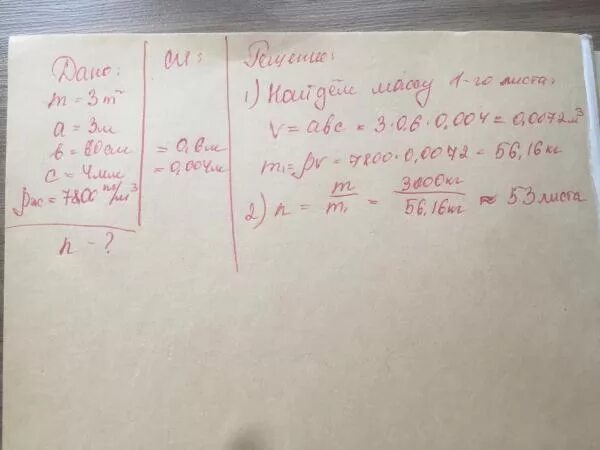 Дано:
m = 3 т
a = 3м
b = 60см
c = 4мм
ρж = 7800 кг/м³
n - ?
СИ:
= 0,6м
= 0,004м
Решение:
1) Найдём массу 1-го листа:
V = abc = 3·0,6·0,004 = 0,0072м³
m₁ = ρV = 7800·0,0072 = 56,16кг
2) n = m/m₁ = 3000кг/56,16кг ≈ 53 листа